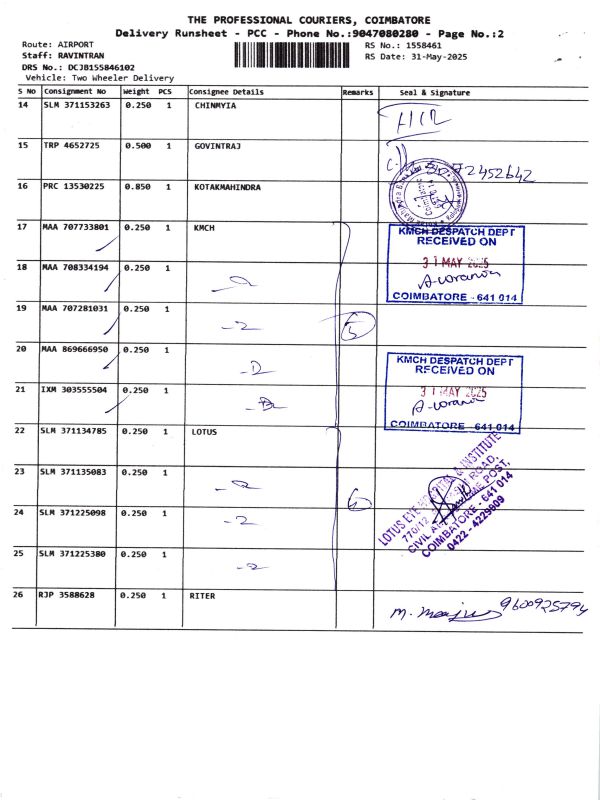 THE PROFESSIONAL COURIERS, COIMBATORE
Delivery Runsheet - PCC - Phone No.:9047080280 - Page No.:2
Route: AIRPORT
RS No.: 1558461
Staff: RAVINTRAN
RS Date: 31-May-2025
DRS No.: DCJB155846102
Vehicle: Two Wheeler Delivery
S No Consignment No Weight PCS Consignee Details Remarks Seal & Signature
14 SLM 371153263 0.250 1 CHINMYIA
15 TRP 4652725 0.500 1 GOVINTRAJ
16 PRC 13530225 0.850 1 KOTAKMAHINDRA
17 MAA 707733801 0.250 1 KMCH
KMCH DESPATCH DEPT
RECEIVED ON
31 MAY 2025
COIMBATORE - 641 014
18 MAA 708334194 0.250 1
19 MAA 707281031 0.250 1
20 MAA 869666950 0.250 1
KMCH DESPATCH DEPT
RECEIVED ON
31 MAY 2025
COIMBATORE - 641 014
21 IXM 303555504 0.250 1
22 SLM 371134785 0.250 1 LOTUS
LOTUS EYE HOSPITAL & INSTITUTE
770/12, ROAD,
CIVIL POST,
COIMBATORE - 641 014
0422 - 4229909
23 SLM 371135083 0.250 1
24 SLM 371225098 0.250 1
25 SLM 371225380 0.250 1
26 RJP 3588628 0.250 1 RITER
9600925794